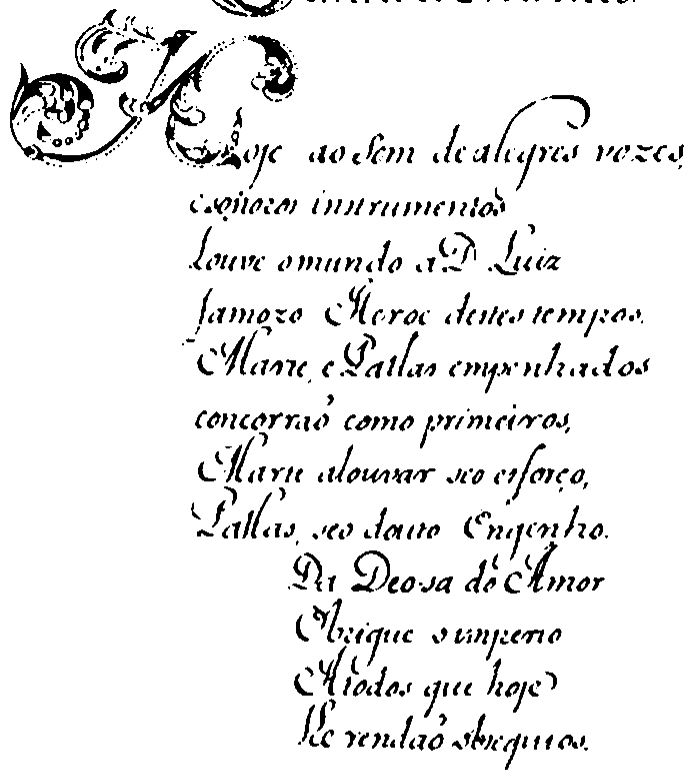 Hoje ao Som de alegres vozes,
e sonoros instrumentos
Louve o mundo a D Luiz
famozo Heroe destes tempos.
Marte, e Pallas empenhados
concorraõ como primeiros,
Marte alouvar seo esforço,
Pallas, seo douto Engenho.
Da Deosa do Amor
Obrigue o imperio
A todos que hoje
Le rendaõ obsequios.